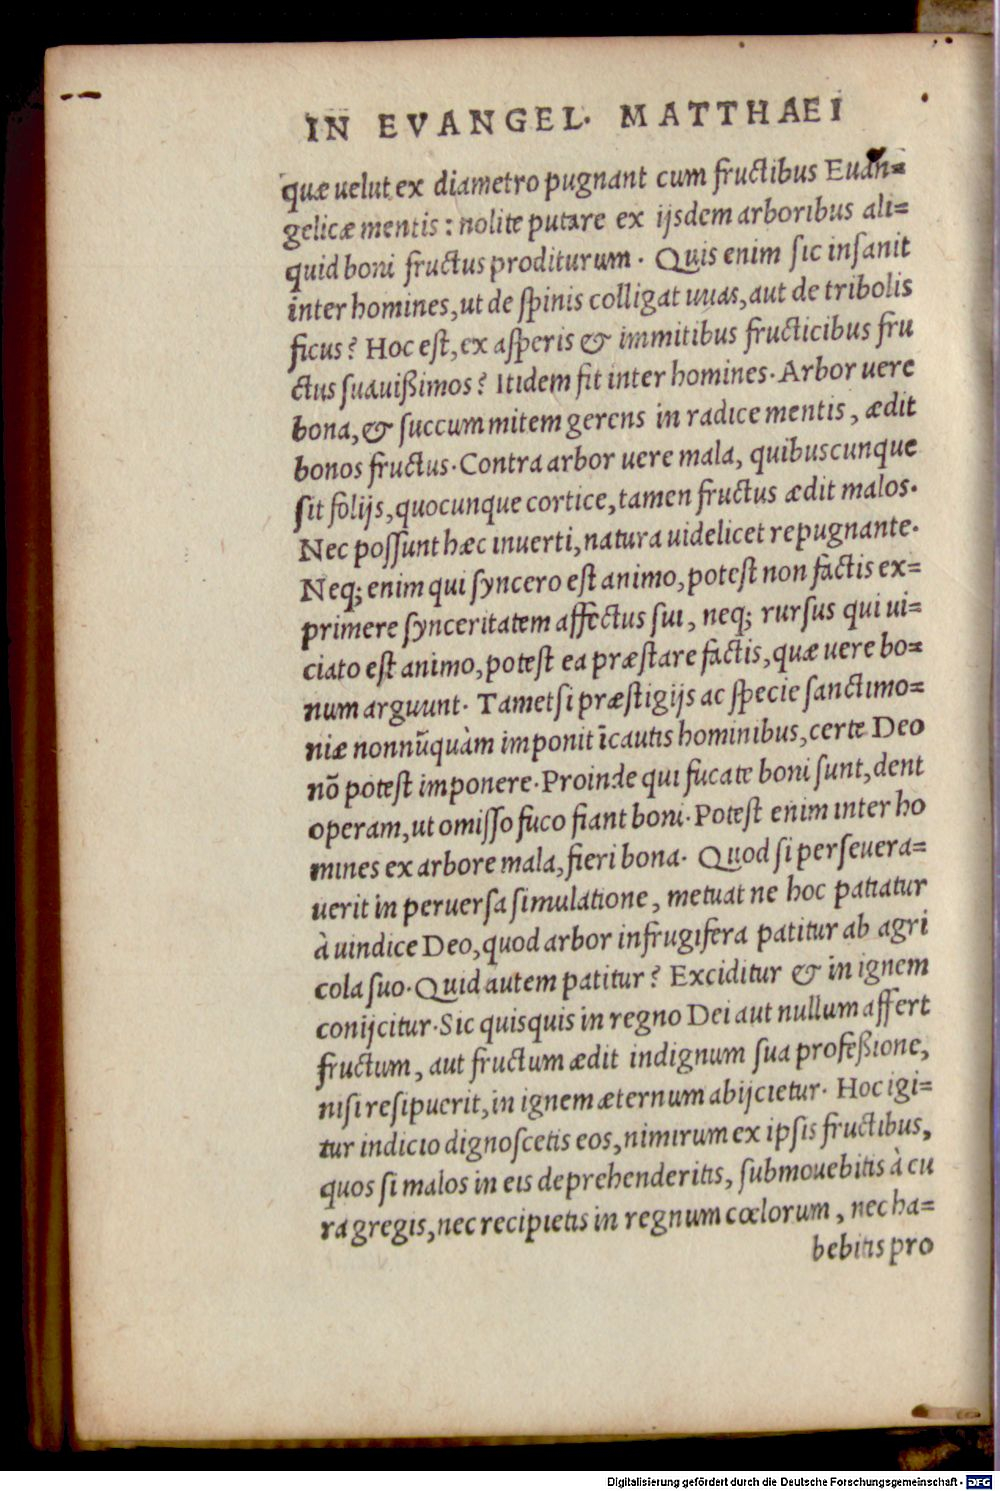 IN EVANGEL. MATTHAEI
quæ uelut ex diametro pugnant cum fructibus Euan=
gelicæ mentis : nolite putare ex ijsdem arboribus ali=
quid boni fructus proditurum . Quis enim sic insanit
inter homines, ut de spinis colligat uuas, aut de tribolis
ficus? Hoc est, ex asperis & immitibus fructicibus fru
ctus suauißimos? Itidem fit inter homines. Arbor uere
bona, & succum mitem gerens in radice mentis, ædit
bonos fructus. Contra arbor uere mala, quibuscunque
sit folijs, quocunque cortice, tamen fructus ædit malos.
Nec possunt hæc inuerti, natura uidelicet repugnante.
Neq; enim qui syncero est animo, potest non factis ex=
primere synceritatem affectus sui, neq; rursus qui ui=
ciato est animo, potest ea præstare factis, quæ uere bo=
num arguunt. Tametsi præstigijs ac specie sanctimo=
niæ nonnũquàm imponit ĩcautis hominibus, certe Deo
nõ potest imponere. Proinde qui fucate boni sunt, dent
operam, ut omisso fuco fiant boni. Potest enim inter ho
mines ex arbore mala, fieri bona. Quod si perseuera=
uerit in peruersa simulatione, metuat ne hoc patiatur
à uindice Deo, quod arbor infrugifera patitur ab agri
cola suo. Quid autem patitur? Exciditur & in ignem
conijcitur. Sic quisquis in regno Dei aut nullum affert
fructum, aut fructum ædit indignum sua profeßione,
nisi resipuerit, in ignem æternum abijcietur. Hoc igi=
tur indicio dignoscetis eos, nimirum ex ipsis fructibus,
quos si malos in eis deprehenderitis, submouebitis à cu
ra gregis, nec recipietis in regnum cœlorum, nec ha=
bebitis pro
Digitalisierung gefördert durch die Deutsche Forschungsgemeinschaft - DFG